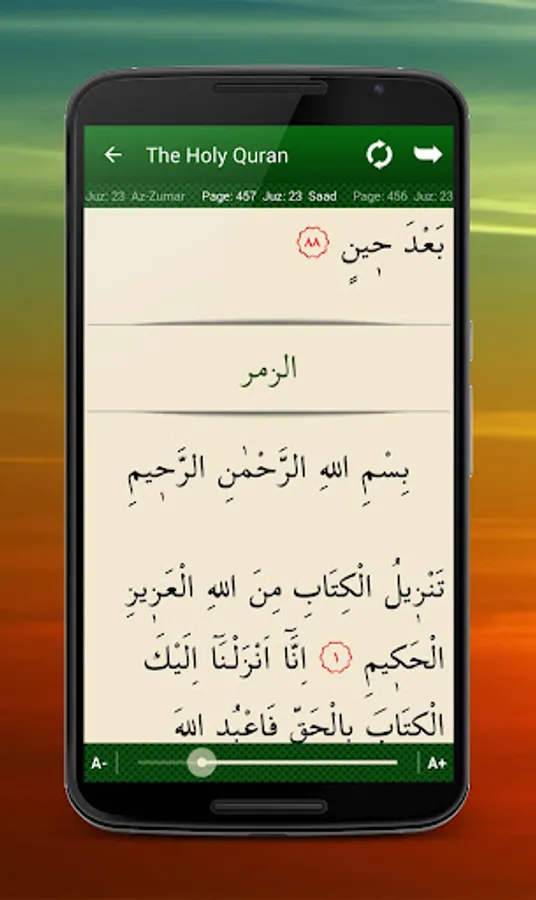 The Holy Quran
Juz: 23 Az-Zumar Page: 457 Juz: 23 Saad Page: 456 Juz: 23
بَعْدَ ح۪ينٍ ٨٨
الزمر
بِسْمِ اللهِ الرَّحْمٰنِ الرَّح۪يمِ
تَنْز۪يلُ الْكِتَابِ مِنَ اللهِ الْعَز۪يزِ
الْحَك۪يمِ ١ اِنَّٓا اَنْزَلْنَٓا اِلَيْكَ
الْكِتَابَ بِالْحَقِّ فَاعْبُدِ اللهَ
A- A+